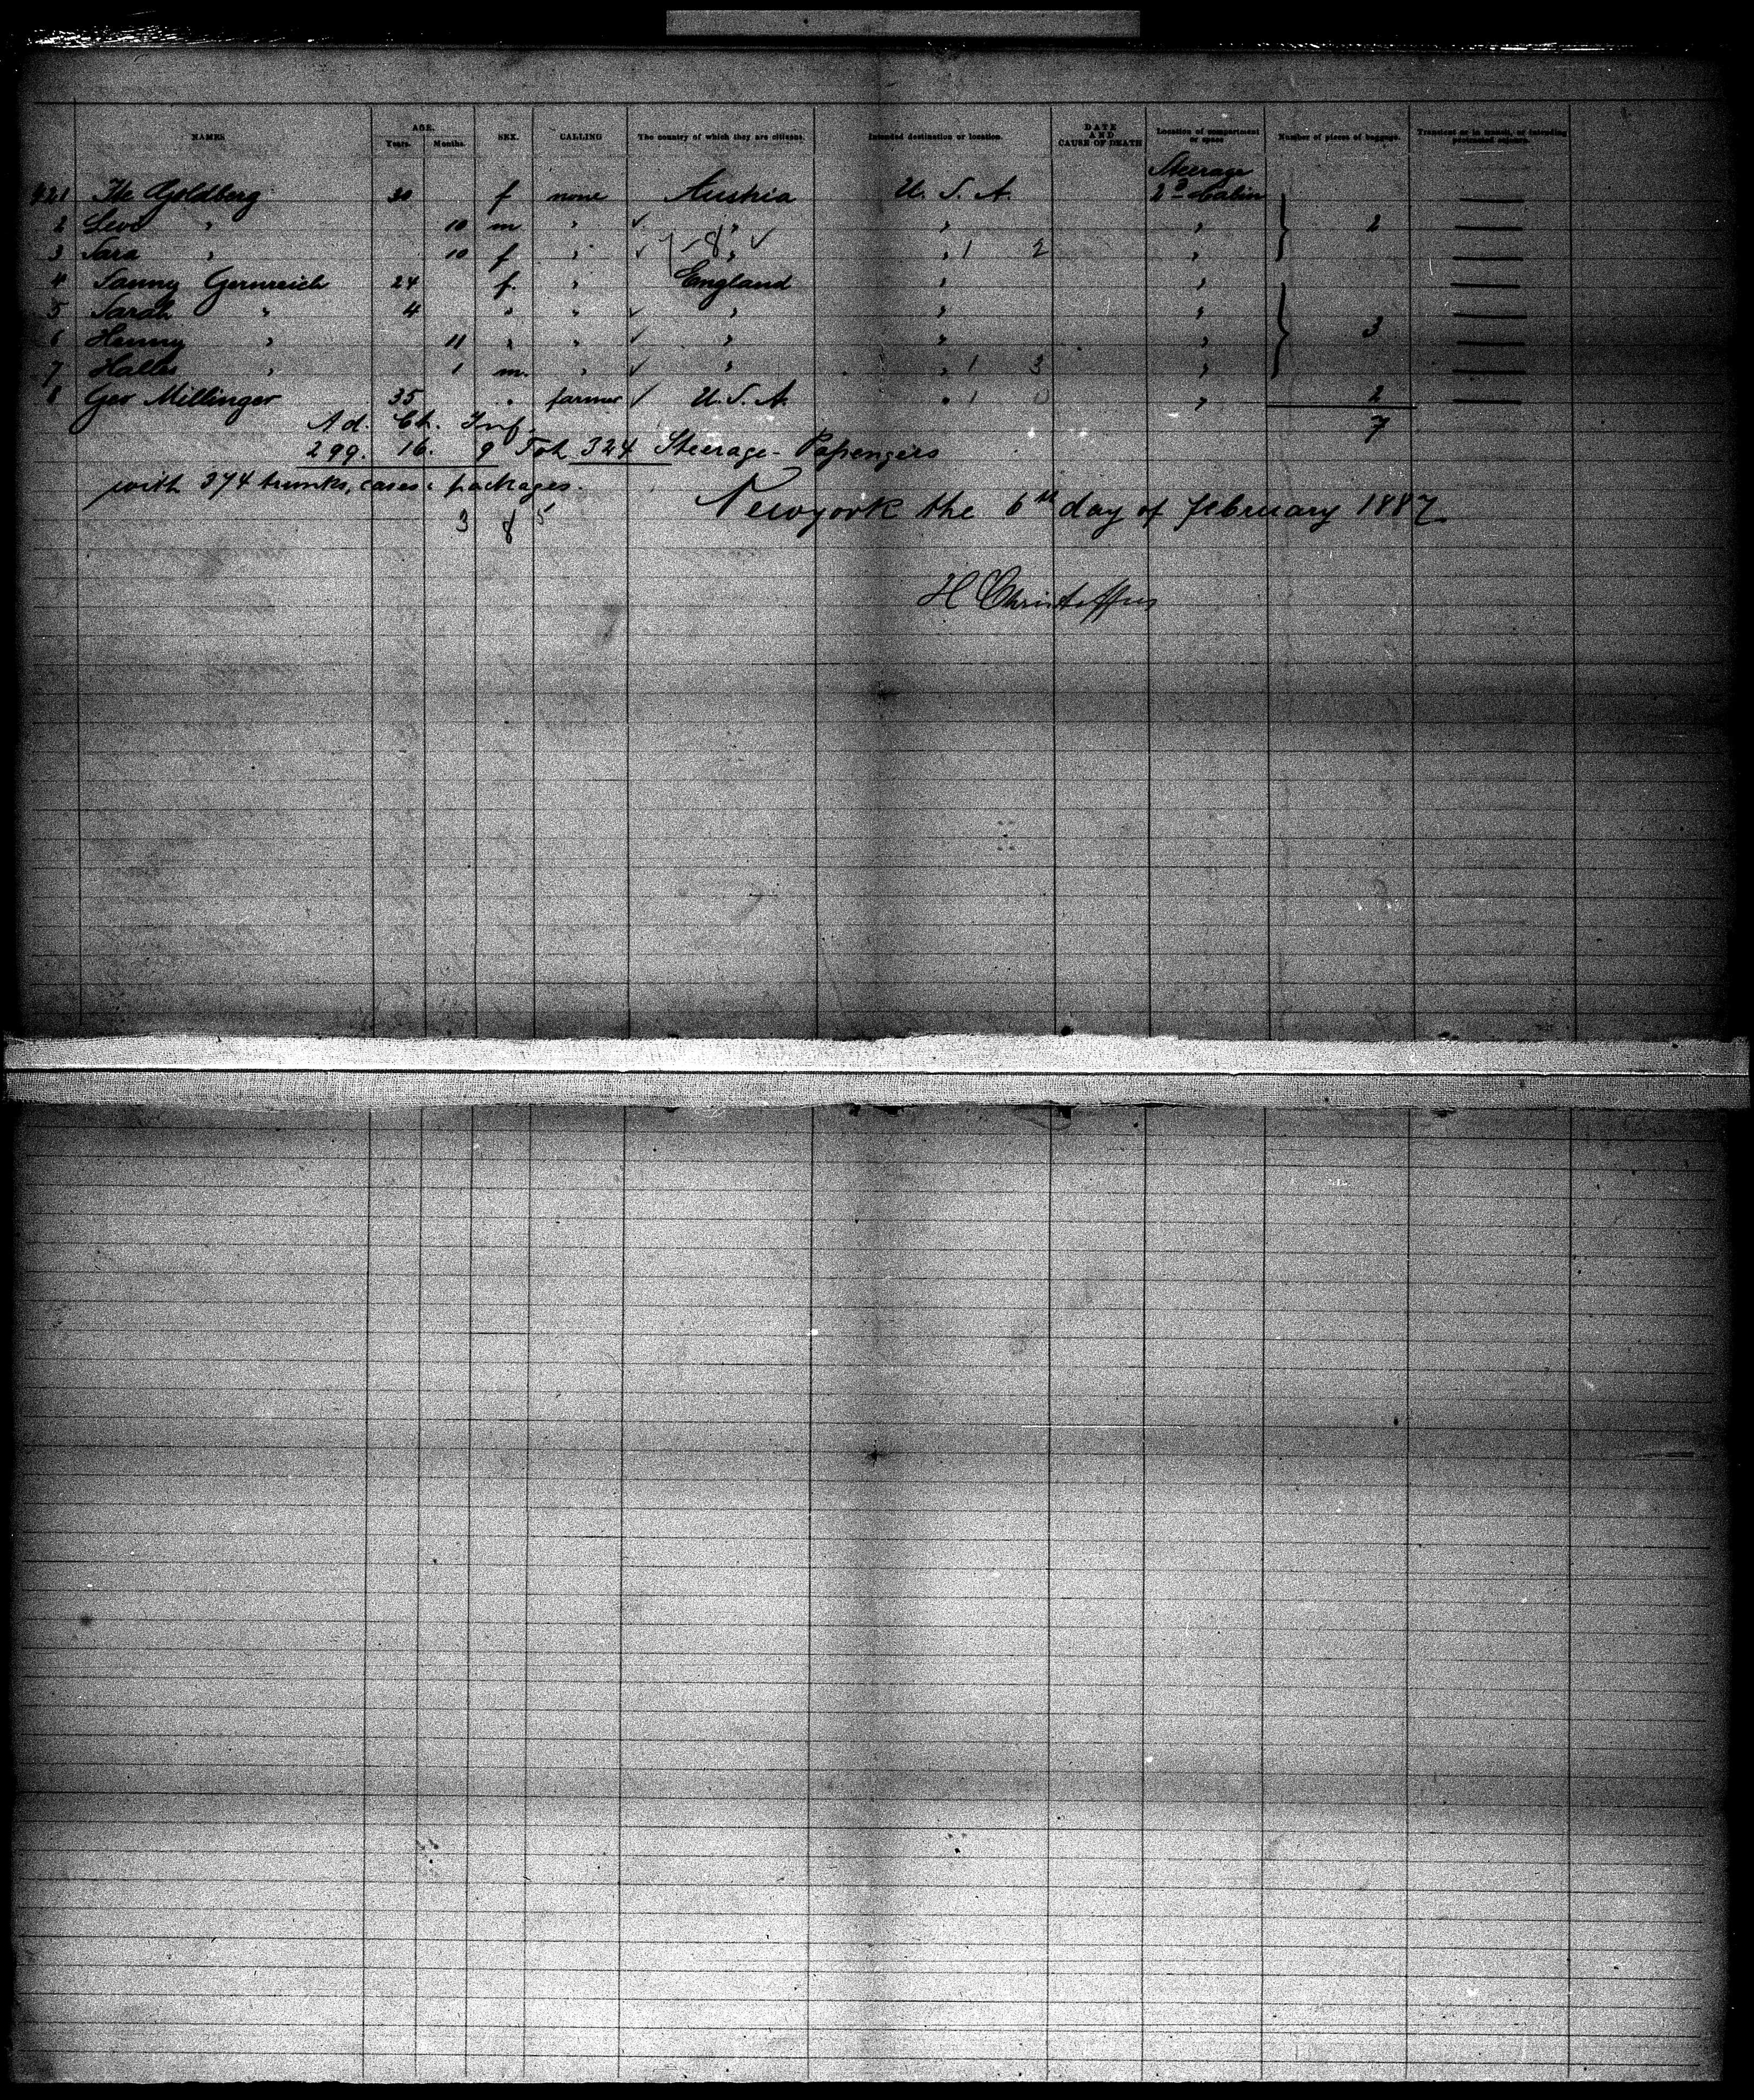 NAMES AGE. Years. Months. SEX. CALLING The country of which they are citizens. Intended destination or location. DATE AND CAUSE OF DEATH Location of compartment or space Number of pieces of baggage. Transient or in transit, or intending protracted sojourn.
Steerage
321 Goldberg 30 f none Austria U. S. A. 2d Cabin
2 Levi " 10 m " " " " 2
3 Sara " 10 f " " " 1 2 "
4 Fanny Gernreich 24 f. " England " "
5 Sarah " 4 " " " " " 3
6 Henny " 11 " " " " "
7 " 1 m. " " " 1 3 "
8 Geo Millinger 35 " farmer U.S.A. " 1 0 " 2
Ad. Ch. Inf. 7
299. 16. 9 Tot 324 Steerage-Passengers
with 374 trunks, cases & packages.
Newyork the 6th day of february 1887
3 8 5
H Christoffers